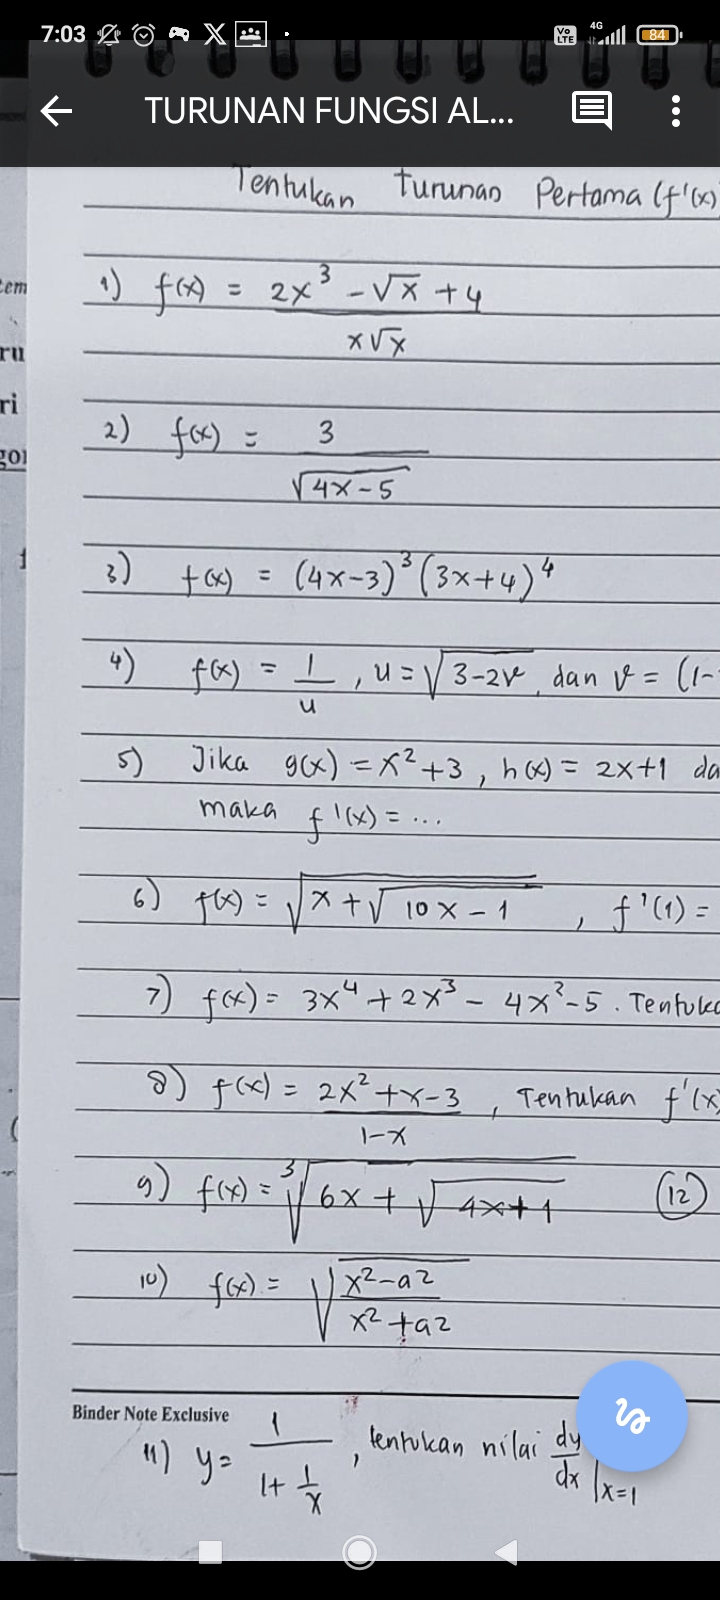 7:03
Vo LTE 4G 84
TURUNAN FUNGSI AL...
Tentukan Turunan Pertama (f'(x)
1) f(x) = 2x³ - √x + 4
x√x
2) f(x) = 3
√4x - 5
3) f(x) = (4x-3)³ (3x+4)⁴
4) f(x) = 1/u , u = √3-2v , dan v = (1-
5) Jika g(x) = x² + 3 , h(x) = 2x+1 da
maka f'(x) = ...
6) f(x) = √x + √10x - 1 , f'(1) =
7) f(x) = 3x⁴ + 2x³ - 4x² - 5 . Tentuka
8) f(x) = 2x² + x - 3 , Tentukan f'(x)
1-x
9) f(x) = ³√6x + √4x+1 (12)
10) f(x) = √x²-a2
x²+a2
Binder Note Exclusive
11) y = 1 , tentukan nilai dy
1 + 1/x dx |x=1
tem
ru
ri